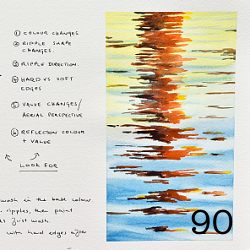 ① COLOUR CHANGES
② RIPPLE SHAPE
CHANGES.
③ RIPPLE DIRECTION.
④ HARD VS SOFT
EDGES
⑤ VALUE CHANGES/
AERIAL PERSPECTIVE
⑥ REFLECTION COLOUR
+ VALUE
LOOK FOR
wash in the base colour
ripples, then paint
first wash.
with hard edges
90